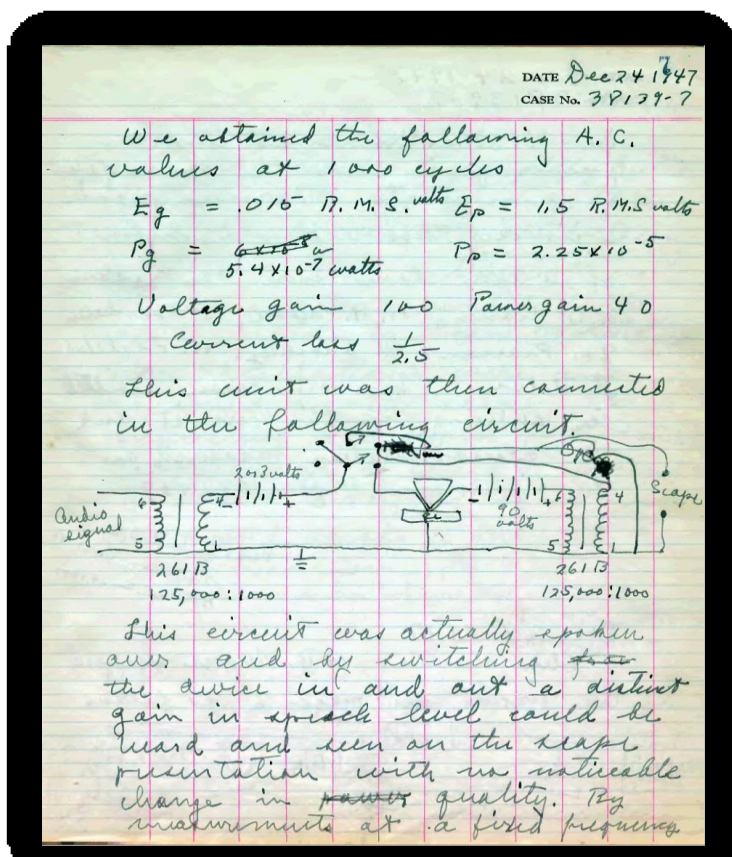 7
DATE Dec 24 1947
CASE No. 38139-7
We obtained the following A.C.
values at 1000 cycles
Eg = .015 R.M.S. volts Ep = 1.5 R.M.S volts
Pg = 6 x 10 w Pp = 2.25 x 10⁻⁵
5.4 x 10⁻⁷ watts
Voltage gain 100 Power gain 40
Current loss 1/2.5
This unit was then connected
in the following circuit.
2 or 3 volts
Audio signal
6 5 4 1
- +
Ge
- +
90 volts
6 5 4 1
Scope
261 B
125,000:1000
261 B
125,000:1000
This circuit was actually spoken
over and by switching
the device in and out a distinct
gain in speech level could be
heard and seen on the scope
presentation with no noticeable
change in power quality. By
measurements at a fixed frequency